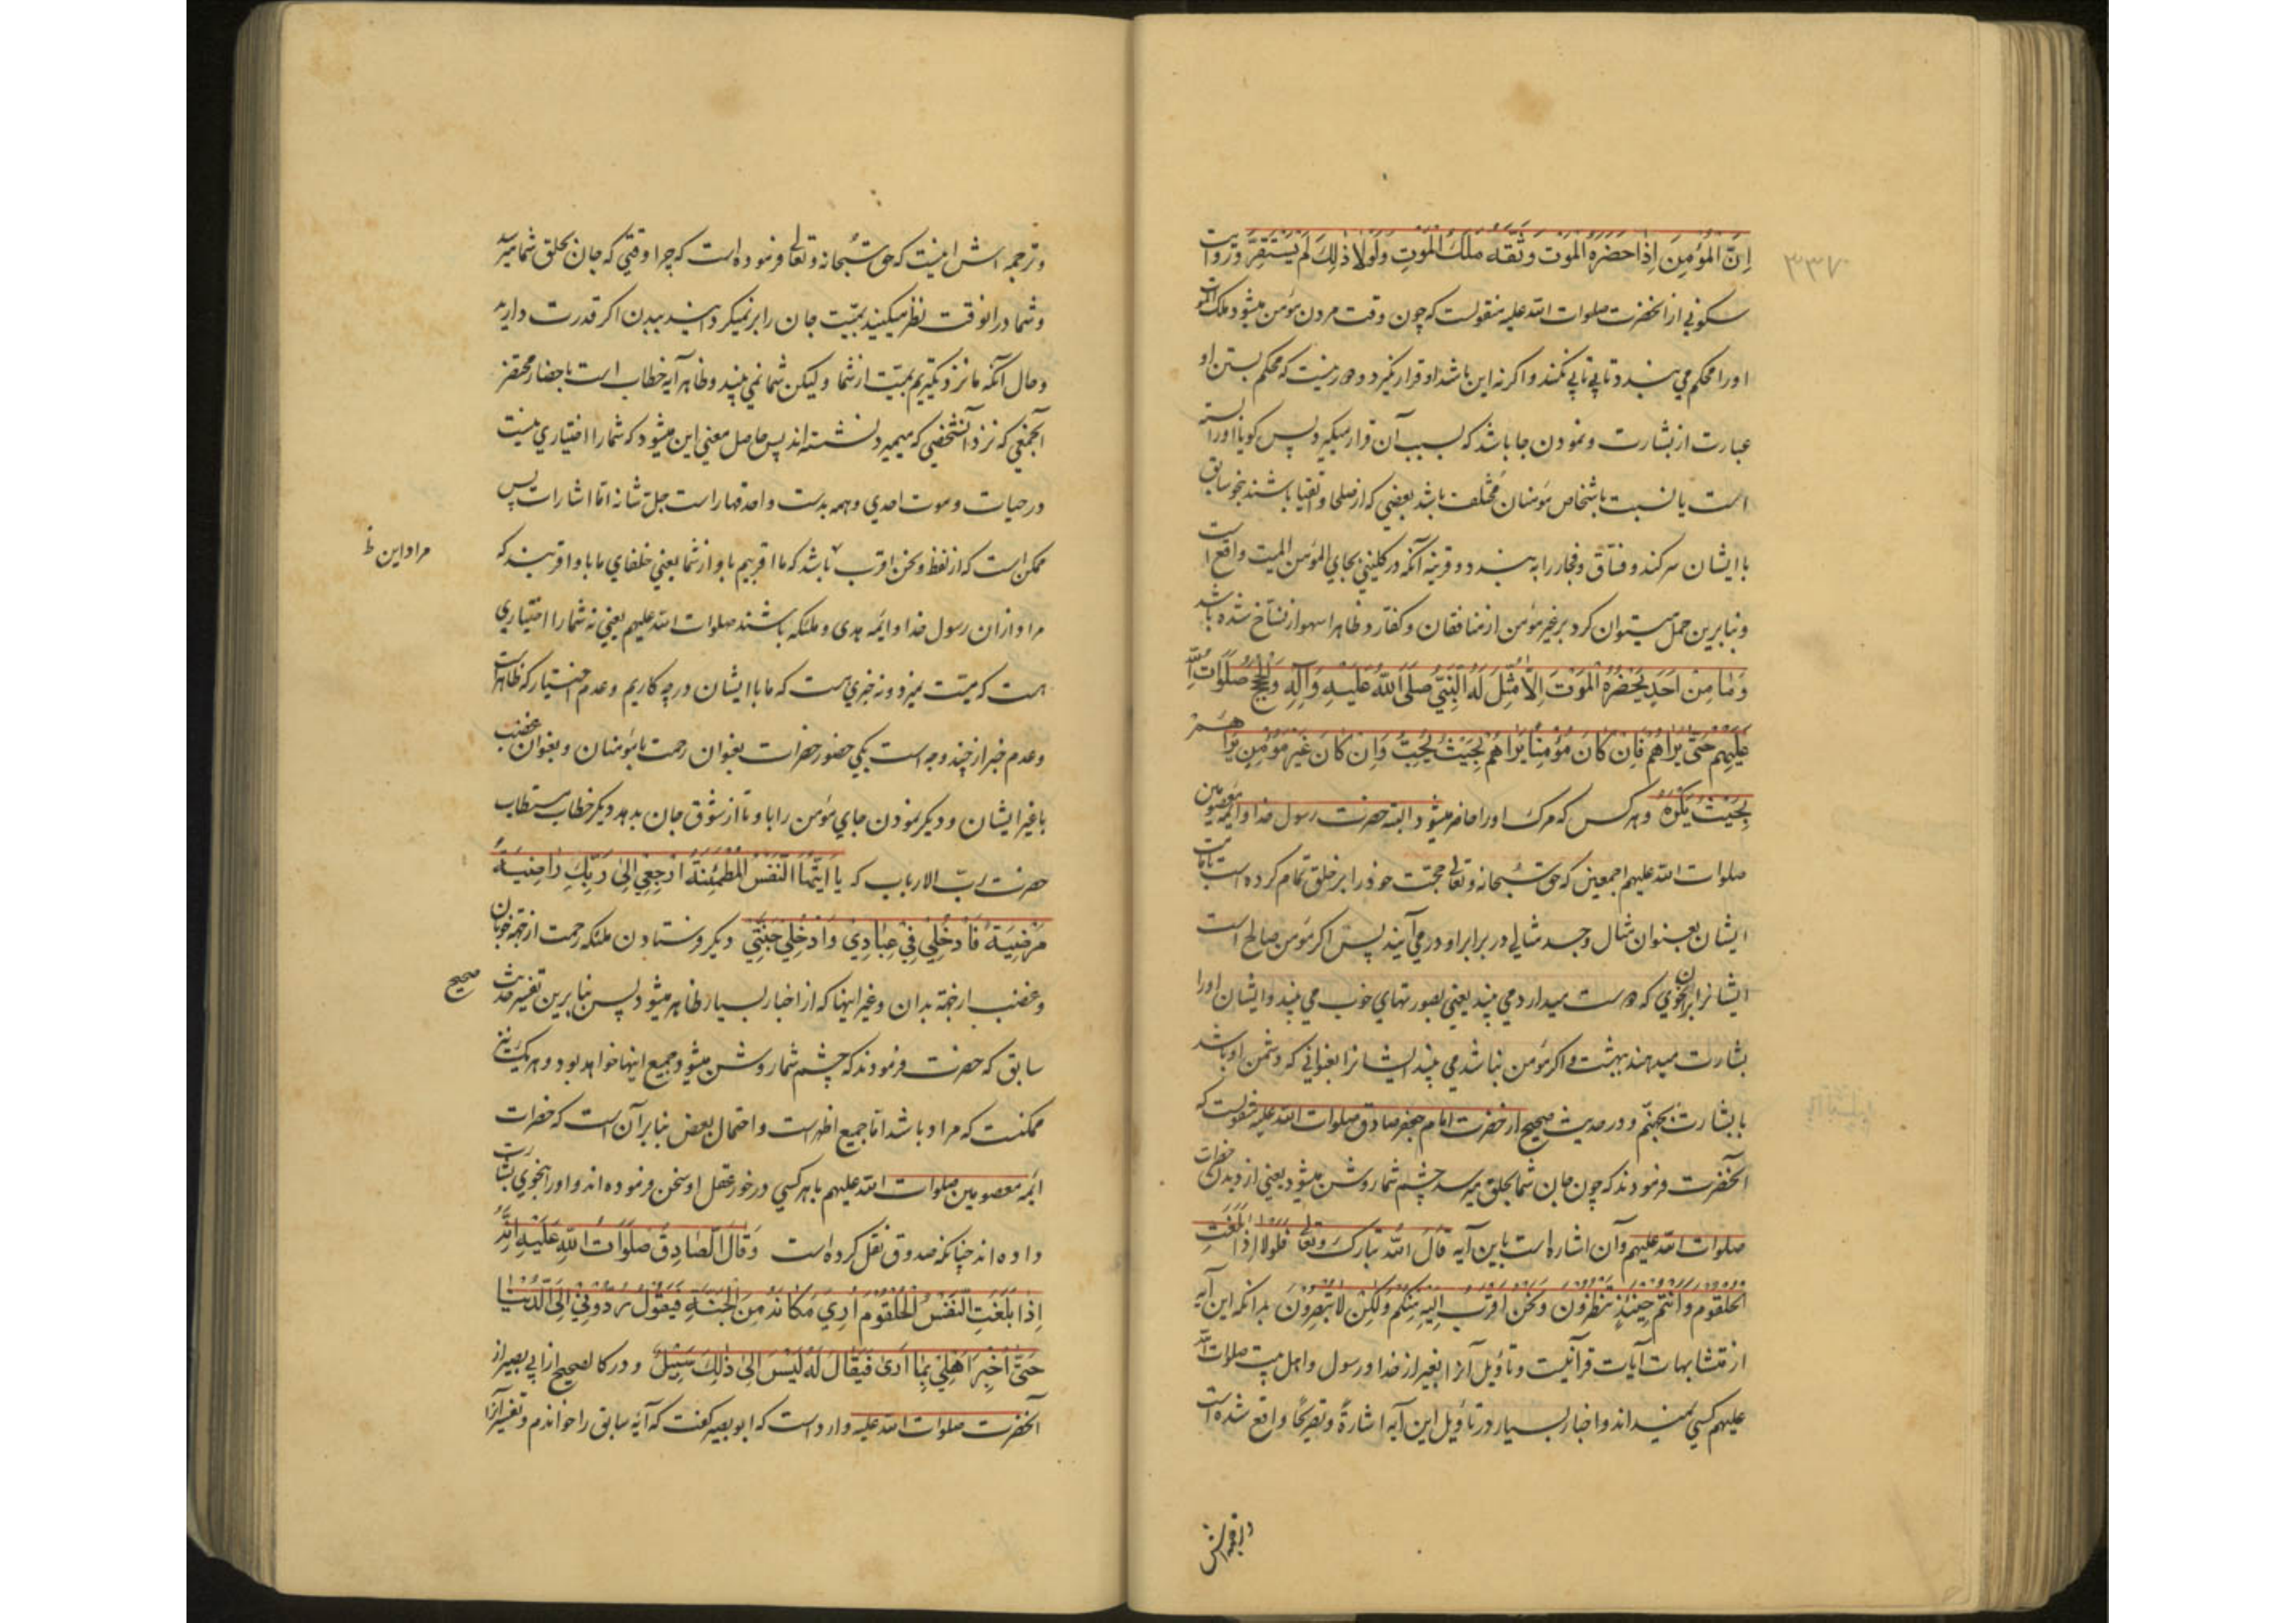 ۳۳۷
اِنَّ المُؤمِنَ اِذا حضره الموت وثقه ملك الموتِ ولولا ذلِكَ لم يستقِرَّ ودر روايت
سكوني از انحضرت صلوات الله عليه منقولست كه چون وقت مردن مؤمن ميشود ملك الموت
او را محكم مي بندد تا پي تا پي نكند و اكر نه اين باشد او قرار نكيرد و دور نيست كه محكم بستن او
عبارت از بشارت و نمودن جا باشد كه بسبب آن قرار ميكيرد پس كويا او را بسته
است يا نسبت باشخاص مؤمنان مختلف باشد بعضي كه از صلحا و اتقيا باشند بنحو سابق
با ايشان سر كند و فساق و فجار را به بندد و قرينه آنكه در كليني بجاي المؤمن الميت واقع است
و بنابرين حمل ميتوان كرد بر غير مؤمن از منافقان و كفار و ظاهرا سهو از نساخ شده باشد
وَمٰا مِن اَحَدٍ يَحضُرُهُ المَوتَ اِلّا مُثِّلَ لَهُ النَّبِيُّ صلَّى اللهُ عَلَيهِ وَآلِهِ وَالحُجَجُ صَلَوٰاتُ اللهِ
عَلَيهِم حَتّى يَرٰاهُم فَاِن كٰانَ مُؤمِنًا يَرٰاهُم بِحَيثُ يُحِبُّ وَاِن كٰانَ غَيرَ مُؤمِنٍ يَرٰاهُم
بِحَيثُ يَكرَهُ و هر كس كه مرك او را حاضر ميشود البته حضرت رسول خدا و ايمه معصومين
صلوات الله عليهم اجمعين كه حق سُبحانه و تعالى حجت خود را بر خلق تمام كرده است بامامت
ايشان بعنوان مثال و جسد مثالي در برابر او در مي آيند پس اكر مؤمن صالح است
ايشانرا بر آن نحوي كه دوست ميدارد مي بيند يعني بصورتهاي خوب مي بيند و ايشان او را
بشارت ميدهند ببهشت و اكر مؤمن نباشد مي بيند ايشانرا بعنواني كه دشمن او باشد
با بشارت بجهنم و در حديث صحيح از حضرت امام جعفر صادق صلوات الله عليه منقولست كه
آنحضرت فرمودند كه چون جان شما بحلق ميرسد چشم شما روشن ميشود يعني از ديدن حضرات
صلوات الله عليهم و آن اشاره است باين آيه قالَ اللهُ تبارَكَ وتعالى فَلَولا اِذا بَلَغَتِ
الحلقوم وانتم حِينَئذٍ تنظرون ونحن اقرب اليه مِنكم ولكِن لا تُبصِرون بدانكه اين آيه
از متشابهات آيات قرآنيست و تاويل آنرا بغير از خدا و رسول و اهل بيت صلوات الله
عليهم كسي نميداند و اخبار بسيار در تاويل اين آيه اشارةً و تصريحًا واقع شده است
و ترجمه اش
و ترجمه اش اينست كه حق سُبحانه و تعالى فرموده است كه چرا وقتي كه جان بحلق شما ميرسد
و شما در انوقت نظر ميكنيد بميّت جان را بر نميكردانيد ببدن اكر قدرت داريد
و حال آنكه ما نزديكتريم بميّت از شما و ليكن شما نمي بينيد و ظاهر آيه خطاب است باحضار محتضر
آنجمعي كه نزد آنشخصي كه ميميرد نشسته اند پس حاصل معني اين ميشود كه شما را اختياري نيست
در حيات و موت احدي و همه بدست واحد قهار است جل شانه اما اشارات پس
ممكن است كه از لفظ و نحن اقرب باشد كه ما اقربيم باو از شما يعني خلفاي ما باو اقربند كه
مراد اين ظ
مراد ازان رسول خدا و ايمه هدى و ملئكه باشند صلوات الله عليهم يعني نه شما را اختياري
هست كه ميّت نميرد و نه خبري هست كه ما با ايشان در چه كاريم و عدم اختيار كه ظاهر است
و عدم خبر از چند وجه است يكي حضور حضرات بعنوان رحمت با مؤمنان و بعنوان غضب
با غير ايشان و ديكر نمودن جاي مؤمن را باو تا از شوق جان بدهد ديكر خطاب مستطاب
حضرت ربّ الارباب كه يٰا اَيَّتُهَا النَّفسُ المُطمَئِنَّةُ ارجِعِي اِلىٰ رَبِّكِ رٰاضِيَةً
مَرضِيَةً فَادخُلِي فِي عِبٰادِي وَادخُلِي جَنَّتِي ديكر فرستادن ملئكه رحمت از جهة خوبان
و غضب از جهة بدان و غير اينها كه از اخبار بسيار ظاهر ميشود پس بنابرين تفسير حديث
صحيح
سابق كه حضرت فرمودند كه چشم شما روشن ميشود جميع اينها خواهد بود و هر يك نيز
ممكنست كه مراد باشد اما جميع اظهر است و احتمال بعض بنا بر آن است كه حضرات
ايمه معصومين صلوات الله عليهم با هر كسي در خور عقل او سخن فرموده اند و او را بنحوي بشارت
داده اند چنانكه صدوق نقل كرده است وَقٰالَ الصّٰادِقُ صَلَوٰاتُ اللهِ عَلَيهِ اِنَّهُ
اِذا بَلَغَتِ النَّفسُ الحُلقُومَ اُرِيَ مَكٰانَهُ مِنَ الجَنَّةِ فَيَقُولُ رُدُّونِي اِلَى الدُّنيٰا
حَتّٰى اُخبِرَ اَهلِي بِمٰا اَرىٰ فَيُقٰالُ لَهُ لَيسَ اِلىٰ ذٰلِكَ سَبِيلٌ و در كالصحيح از ابي بصير از
آنحضرت صلوات الله عليه وارد است كه ابو بصير كفت كه آيه سابق را خواندم و تفسير آنرا